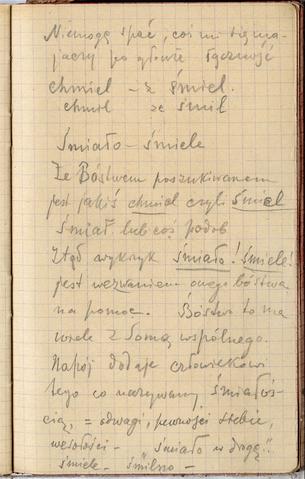 Nie mogę spać, coś mi się ma-
jaczy po głowie łączność
chmiel – z śmiel.
chmil ze śmił
Śmiało – śmiele
Że Bóstwem poszukiwanem
jest jakiś chmiel czyli śmiel
śmiał lub coś podob
Stąd wykryk śmiało! śmiele!
jest wezwaniem onego bóstwa
na pomoc. Bóstwo to ma
wiele z Somą wspólnego.
Napój dodaje człowiekowi
tego co nazywamy śmiałoś-
cią, = odwagi, pewności siebie,
wesołości – śmiało w drogę"
śmiele – śmilno –